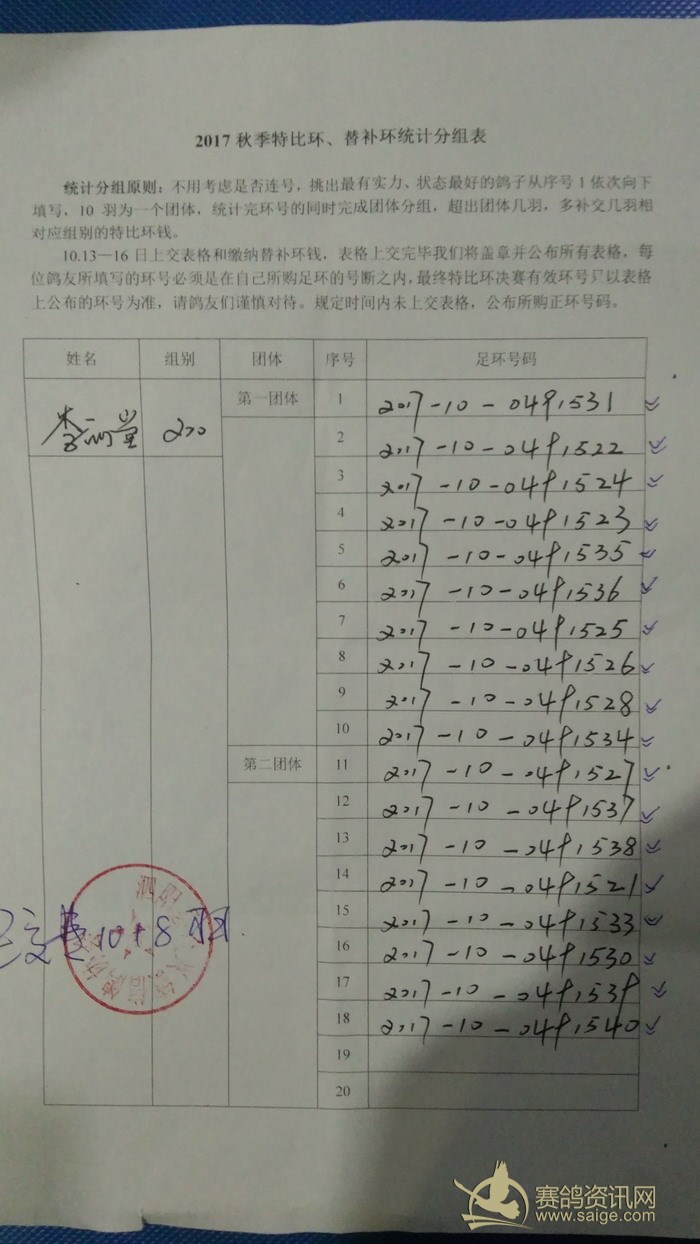 2017 秋季特比环、替补环统计分组表
统计分组原则：不用考虑是否连号，挑出最有实力、状态最好的鸽子从序号 1 依次向下
填写，10 羽为一个团体，统计完环号的同时完成团体分组，超出团体几羽，多补交几羽相
对应组别的特比环钱。
10.13—16 日上交表格和缴纳替补环钱，表格上交完毕我们将盖章并公布所有表格，每
位鸽友所填写的环号必须是在自己所购足环的号断之内，最终特比环决赛有效环号只以表格
上公布的环号为准，请鸽友们谨慎对待。规定时间内未上交表格，公布所购正环号码。
姓名 组别 团体 序号 足环号码
第一团体 1 2017-10-0491531
李 堂 200
2 2017-10-0491522
3 2017-10-0491524
4 2017-10-0491523
5 2017-10-0491535
6 2017-10-0491536
7 2017-10-0491525
8 2017-10-0491526
9 2017-10-0491528
10 2017-10-0491534
第二团体 11 2017-10-0491527
12 2017-10-0491537
13 2017-10-0491538
14 2017-10-0491521
15 2017-10-0491533
16 2017-10-0491530
17 2017-10-0491539
18 2017-10-0491540
19
20
已交费 10+8 羽.
赛鸽资讯网
www.saige.com